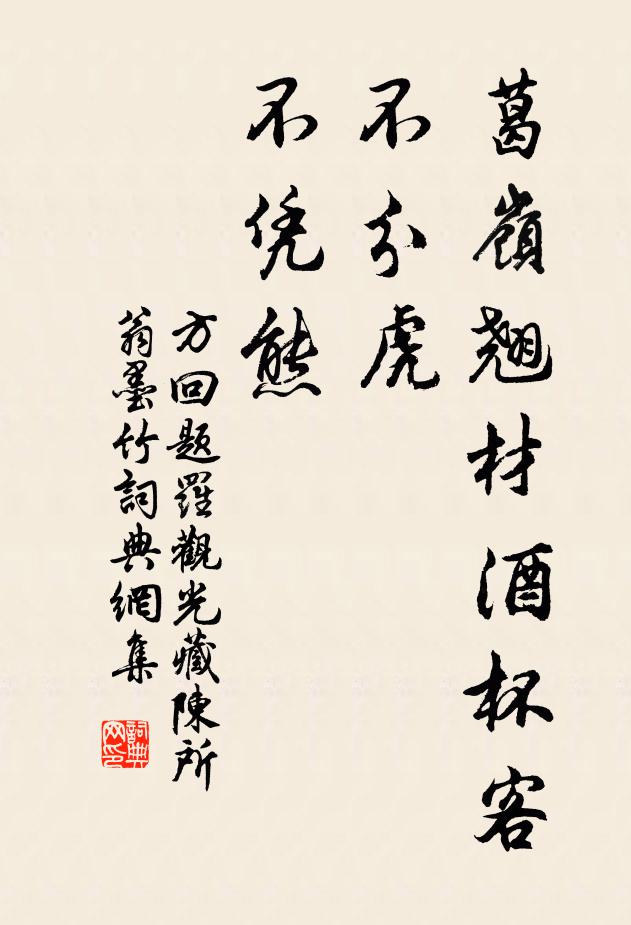 葛嶺翹材酒杯客
不分虎
不凭熊
方回题羅觀光藏陳所
翁墨竹詞典網集
詞典網印